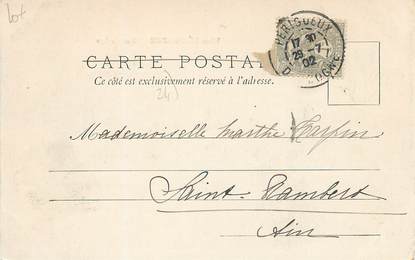 Lot
PÉRIGUEUX
17 30
29 - 7
02
DORDOGNE
CARTE POSTALE
Ce côté est exclusivement réservé à l'adresse.
24)
Mademoiselle Marthe
Saint-Rambert
Ain